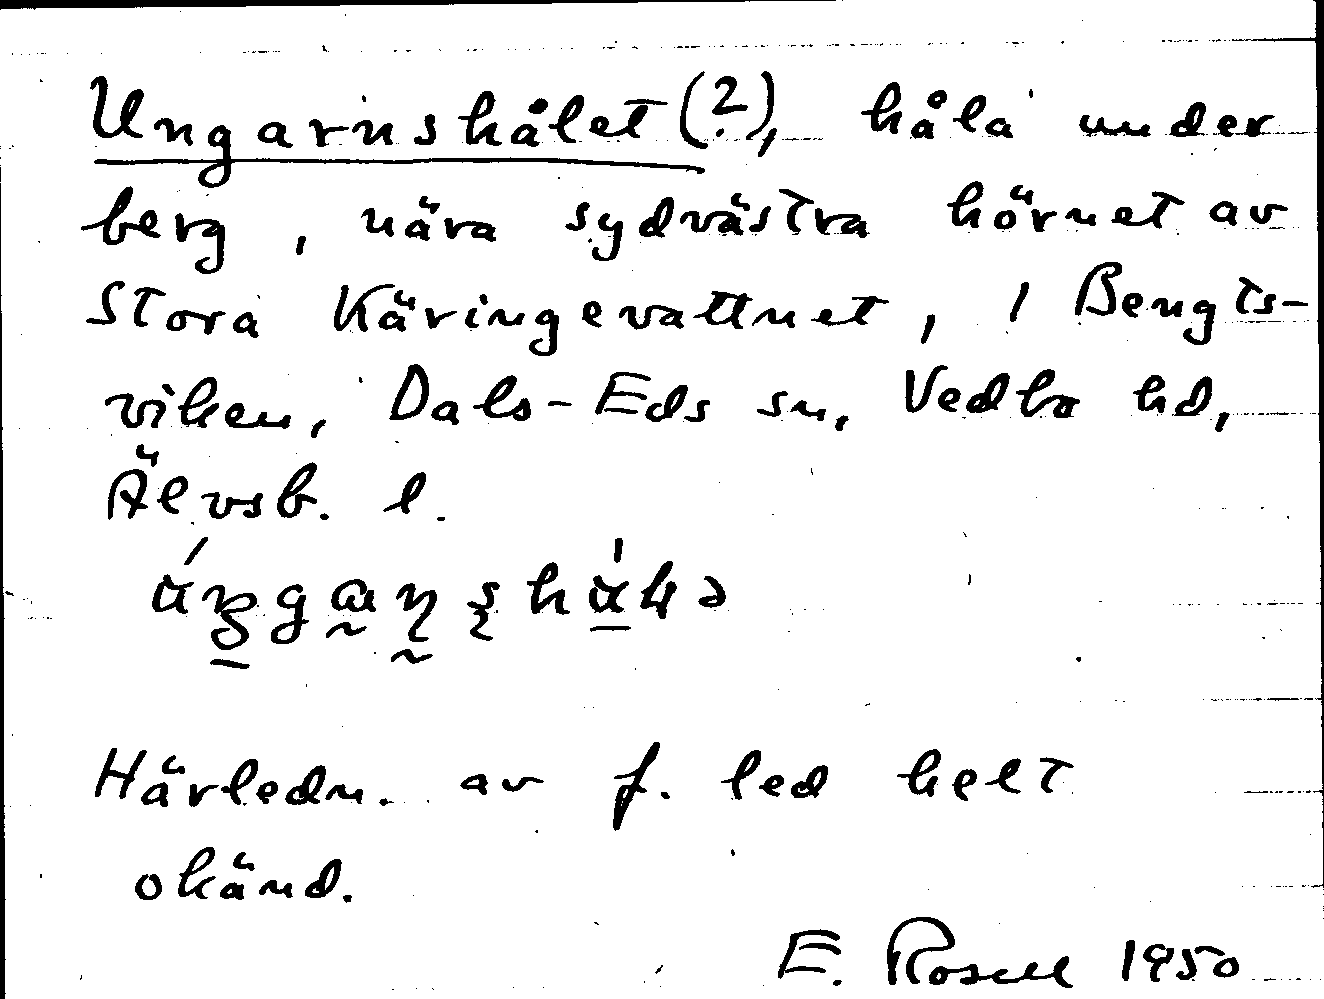 Ungarnshålet (?), håla under
berg, nära sydvästra hörnet av
Stora Käringevattnet, 1 Bengts-
viken, Dals-Eds sn, Vedbo hd,
Älvsb. l.
Härledn. av f. led helt
okänd.
E. Rosell 1950